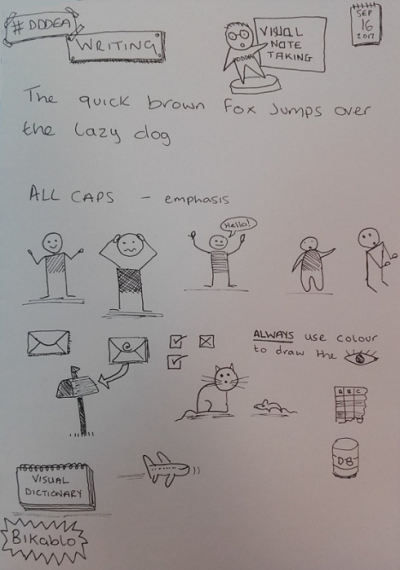 #DDDEA
WRITING
VISUAL
NOTE
TAKING
SEP
16
2017
The quick brown Fox Jumps over
the lazy dog
ALL CAPS - emphasis
Hello!
@
ALWAYS use colour
to draw the
A B C
DB
VISUAL
DICTIONARY
BIKABLO